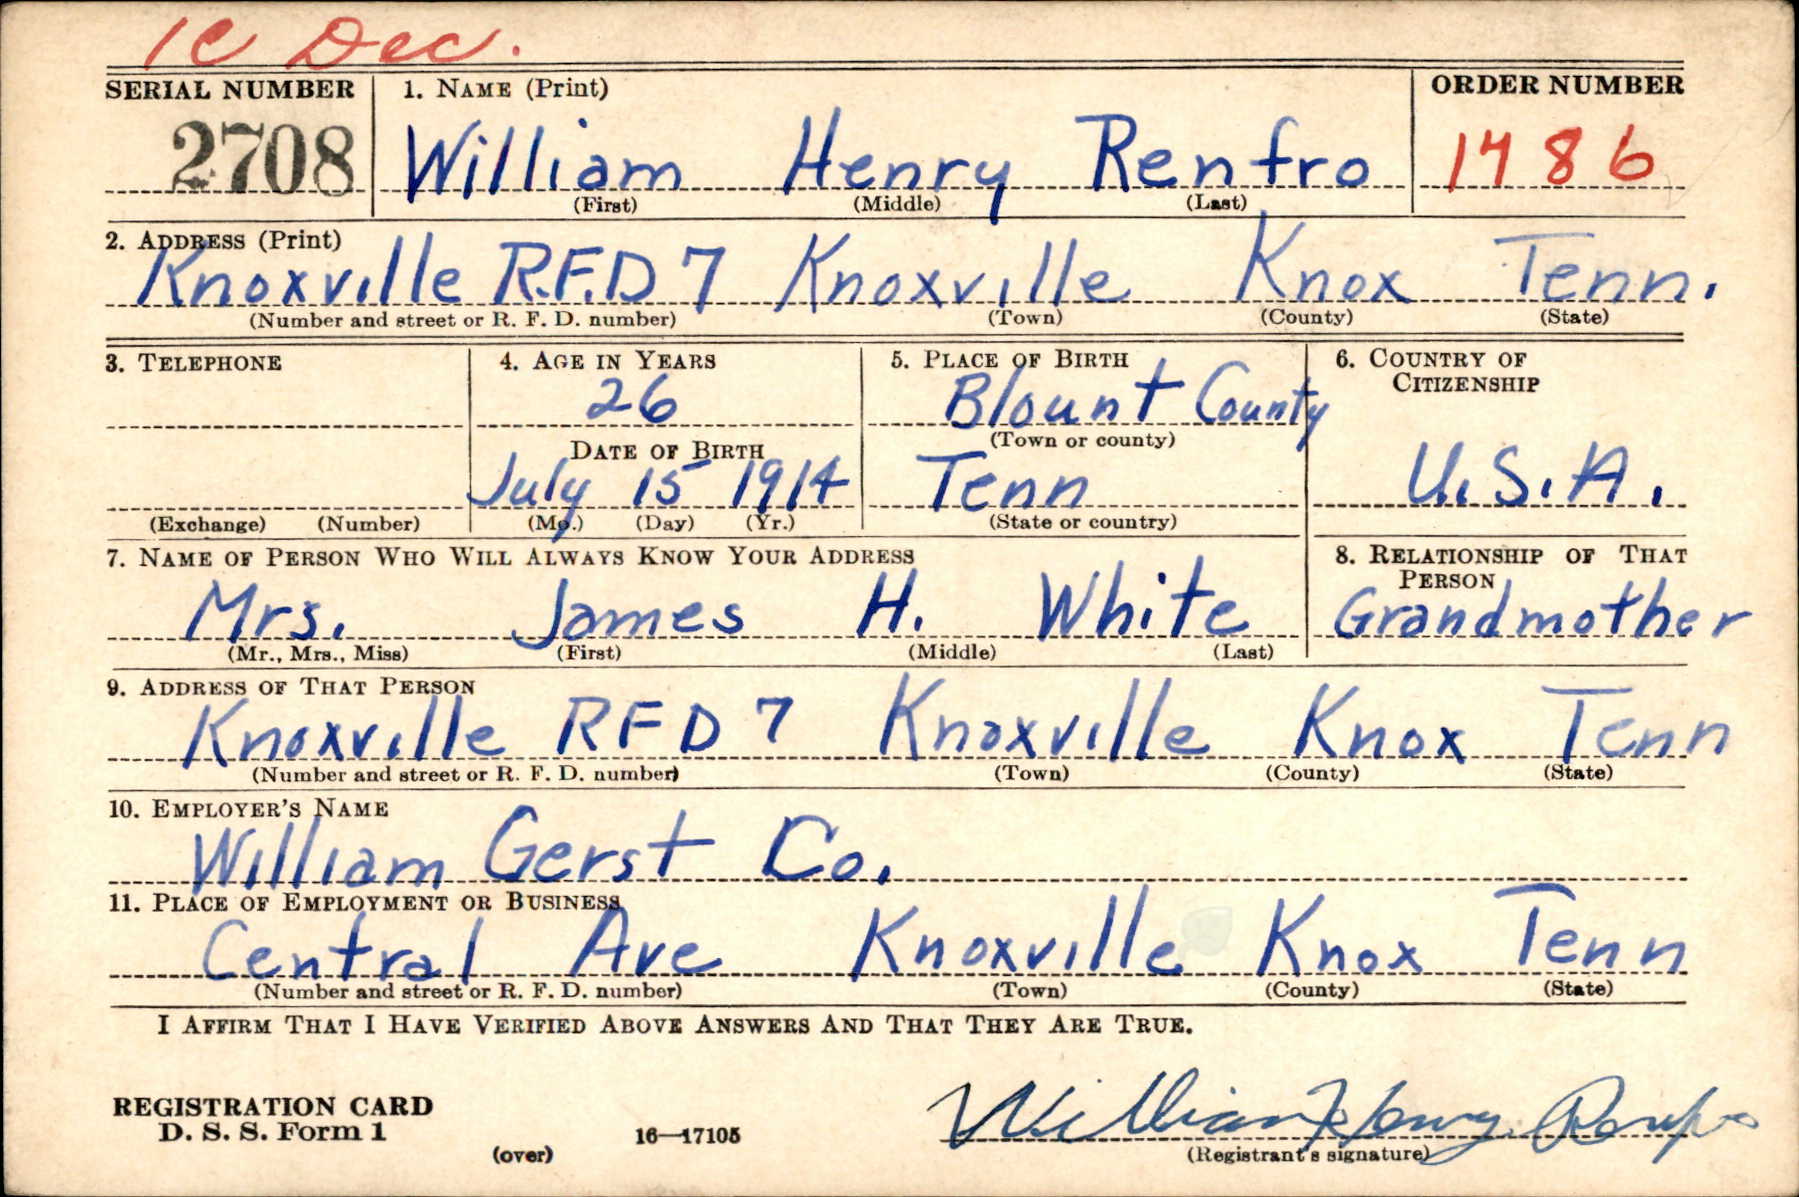 1C Dec.
SERIAL NUMBER 1. NAME (Print) ORDER NUMBER
2708 William Henry Renfro 1486
(First) (Middle) (Last)
2. ADDRESS (Print)
Knoxville R.F.D 7 Knoxville Knox Tenn.
(Number and street or R. F. D. number) (Town) (County) (State)
3. TELEPHONE 4. AGE IN YEARS 5. PLACE OF BIRTH 6. COUNTRY OF
CITIZENSHIP
26 Blount County
(Town or county)
DATE OF BIRTH
July 15 1914 Tenn U.S.A.
(Exchange) (Number) (Mo.) (Day) (Yr.) (State or country)
7. NAME OF PERSON WHO WILL ALWAYS KNOW YOUR ADDRESS 8. RELATIONSHIP OF THAT
PERSON
Mrs. James H. White Grandmother
(Mr., Mrs., Miss) (First) (Middle) (Last)
9. ADDRESS OF THAT PERSON
Knoxville RFD 7 Knoxville Knox Tenn
(Number and street or R. F. D. number) (Town) (County) (State)
10. EMPLOYER'S NAME
William Gerst Co.
11. PLACE OF EMPLOYMENT OR BUSINESS
Central Ave Knoxville Knox Tenn
(Number and street or R. F. D. number) (Town) (County) (State)
I AFFIRM THAT I HAVE VERIFIED ABOVE ANSWERS AND THAT THEY ARE TRUE.
REGISTRATION CARD
D. S. S. Form 1 16—17105 William Henry Renfro
(over) (Registrant's signature)